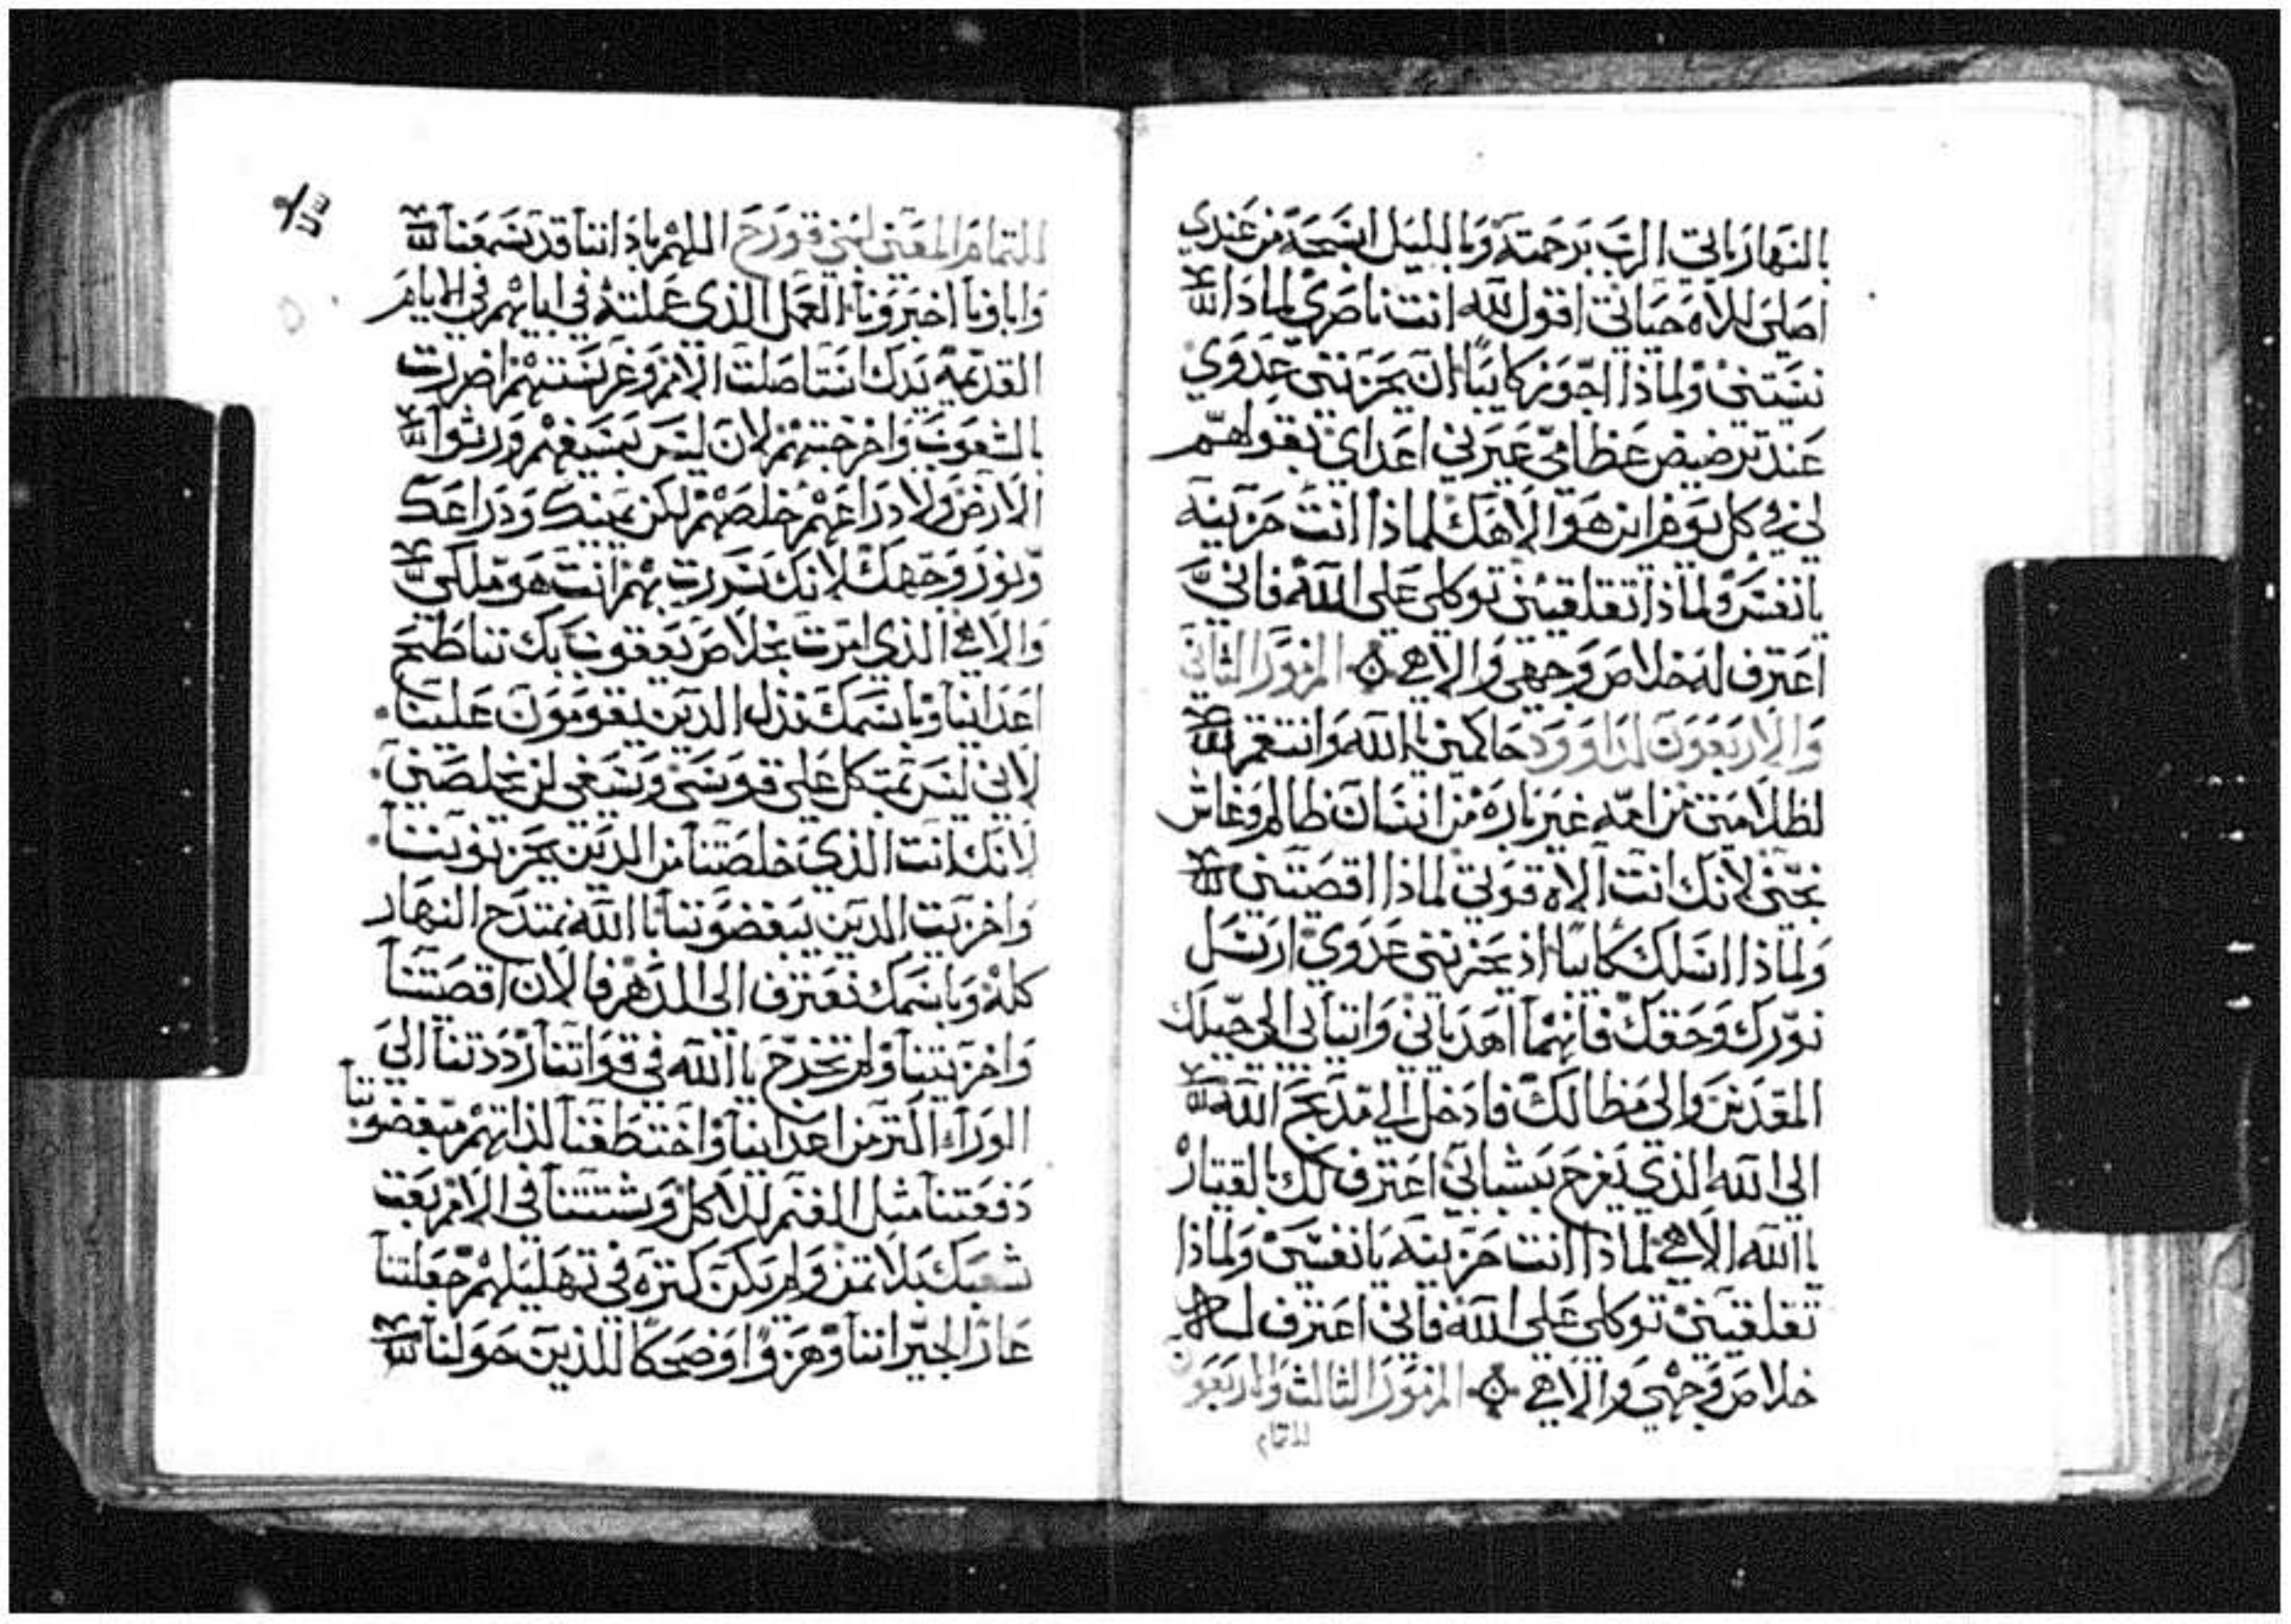 بالنهار ياتي الرب برحمته وبالليل تسبحه من عندي
اصلي للاه حياتي اقول لله انت ناصري لماذا
نسيتني ولماذا اجوز كايبًا ان يحزنني عدوي
عند ترضيض عظامي عيرني اعداي بقولهم
لي في كل يوم اين هو الاهك لماذا انت حزينه
يا نفسي ولماذا تقلقيني توكلي على الله فاني
اعترف له خلاص وجهي والاهي المزمور الثاني
والاربعون لداوود حاكمني يا الله وانتقم
لظلامتي من امه غير باره من انسان ظالم وغاش
نجني لانك انت الاه قوتي لماذا اقصيتني
ولماذا اسلك كايبًا اذ يحزنني عدوي ارسل
نورك وحقك فانهما اهدياني واتيا بي الى جبلك
المقدس والى مظالك فادخل الى مذبح الله
الى الله الذي يفرح بشبابي اعترف لك بالقيتار
يا الله الاهي لماذا انت حزينه يا نفسي ولماذا
تقلقيني توكلي على الله فاني اعترف له
خلاص وجهي والاهي المزمور الثالث والاربعون
للتمام
للتمام المعنى لبني قورح اللهم باذاننا قد سمعنا
واباونا اخبرونا العمل الذي عملته في ايامهم في الايام
القديمه يدك استاصلت الامم وغرستهم اضررت
بالشعوب واخرجتهم لان ليس بسيفهم ورثوا
الارض ولا ذراعهم خلصهم لكن يمينك وذراعك
ونور وجهك لانك سررت بهم انت هو ملكي
والاهي الذي امرت بخلاص يعقوب بك نناطح
اعدانيا وباسمك نذل الذين يقومون علينا
لاني ليس بمتكل على قوسي وسيفي لن يخلصني
لانك انت الذي خلصتنا من الذين يحزنوننا
واخزيت الذين يبغضوننا يا الله نمتدح النهار
كله وباسمك نعترف الى الدهر فالان اقصيتنا
واخزيتنا ولم تخرج يا الله في قواتنا رددتنا الى
الورآء اكثر من اعداينا واختطفنا لذاتهم مبغضوننا
دفعتنا مثل الغنم للاكل وشتتنا في الامم بعت
شعبك بلا ثمن ولم يكن كثره في تهليلهم جعلتنا
عارًا لجيراننا وهزوًا وضحكا للذين حولنا